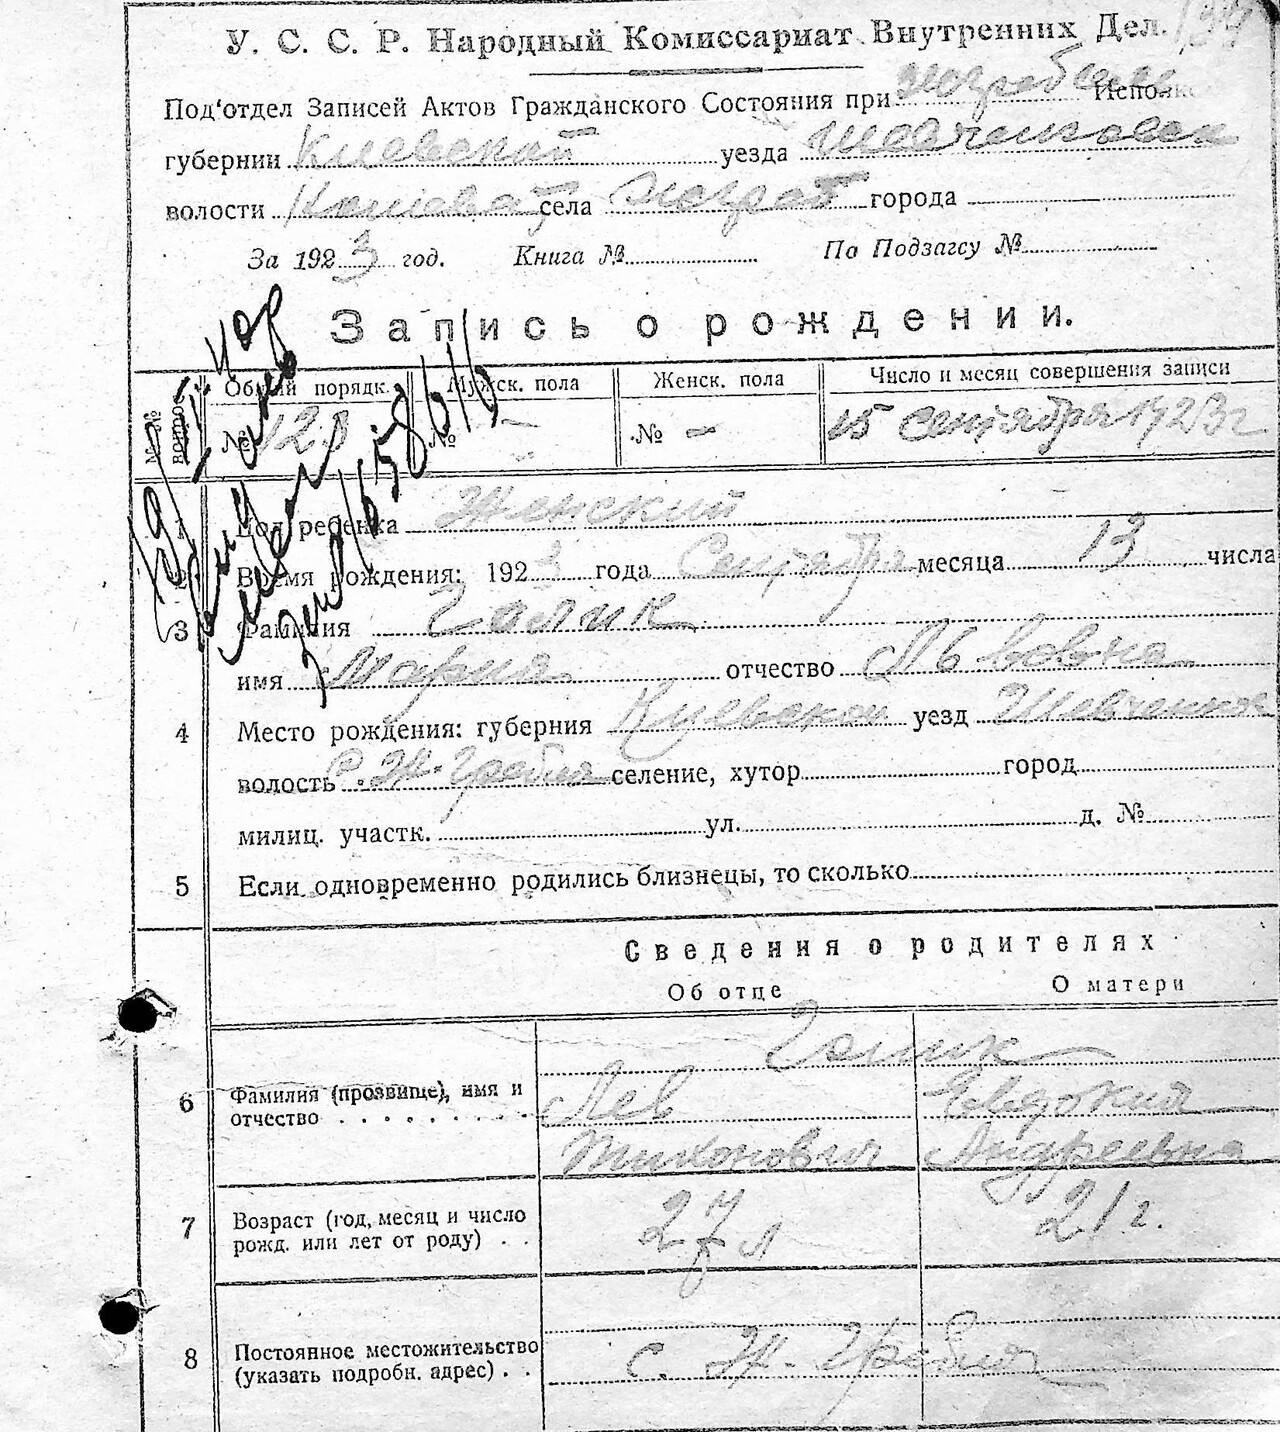 У. С. С. Р. Народный Комиссариат Внутренних Дел.
Под'отдел Записей Актов Гражданского Состояния при
губернии Киевской уезда Шевченковск
волости села города
За 1923 год. Книга № По Подзагсу №
Запись о рождении.
№№ вопрос. Общий порядк. Мужск. пола Женск. пола Число и месяц совершения записи
№ 123 № — № — 15 сентября 1923 г
1 Пол ребенка Женский
2 Время рождения: 1923 года Сентября месяца 13 числа
3 Фамилия Галик
имя Мария отчество Львовна
4 Место рождения: губерния Киевской уезд Шевченков
волость с. Ж. Гребля селение, хутор город
милиц. участк. ул. д. №
5 Если одновременно родились близнецы, то сколько
Сведения о родителях
Об отце О матери
Галик
6 Фамилия (прозвище), имя и отчество Лев Евдокия
Тихонович Андреевна
7 Возраст (год, месяц и число рожд. или лет от роду) 27 л 21 г.
8 Постоянное местожительство (указать подробн. адрес) с. Ж. Гребля